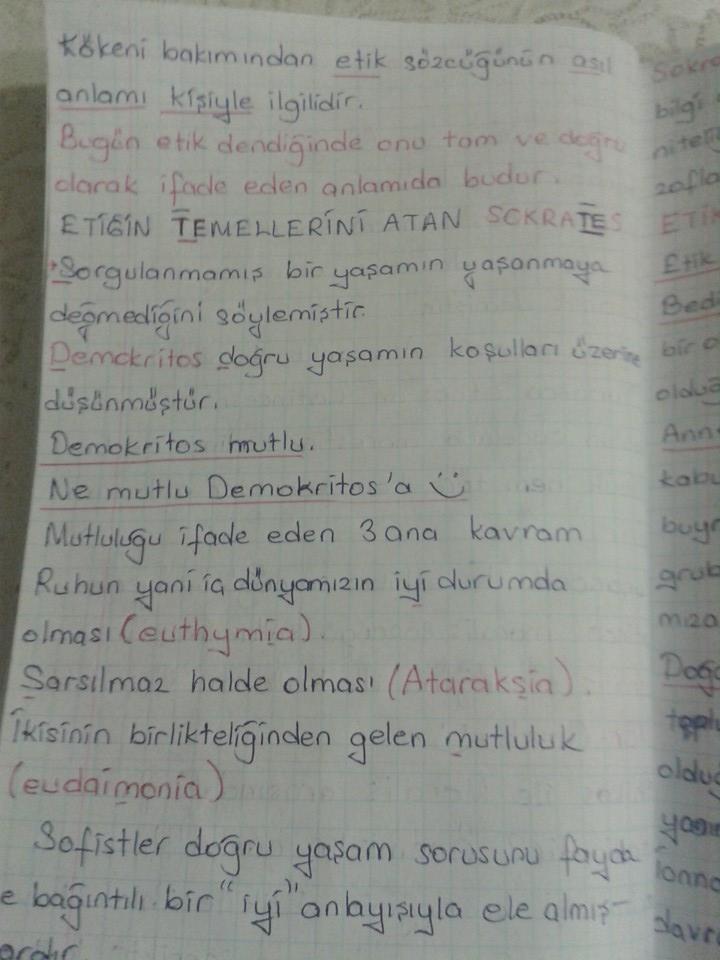 Kökeni bakımından etik sözcüğünün asıl
anlamı kişiyle ilgilidir.
Bugün etik dendiğinde onu tam ve doğru
olarak ifade eden anlamıda budur.
ETİĞİN TEMELLERİNİ ATAN SOKRATES
Sorgulanmamış bir yaşamın yaşanmaya
değmediğini söylemiştir.
Demokritos doğru yaşamın koşulları üzerine
düşünmüştür.
Demokritos mutlu.
Ne mutlu Demokritos'a
Mutluluğu ifade eden 3 ana kavram
Ruhun yani iç dünyamızın iyi durumda
olması (euthymia).
Sarsılmaz halde olması (Ataraksia).
İkisinin birlikteliğinden gelen mutluluk
(eudaimonia)
Sofistler doğru yaşam sorusunu fayda
e bağıntılı bir "iyi" anlayışıyla ele almış-
ardır.
Sokra
bilgi
niteli
zofla
ETİK
Etik
Bed
bir o
olduğ
Ann
kabu
buyr
grub
miza
Doğ
toplu
olduğ
yaşın
lanma
davra